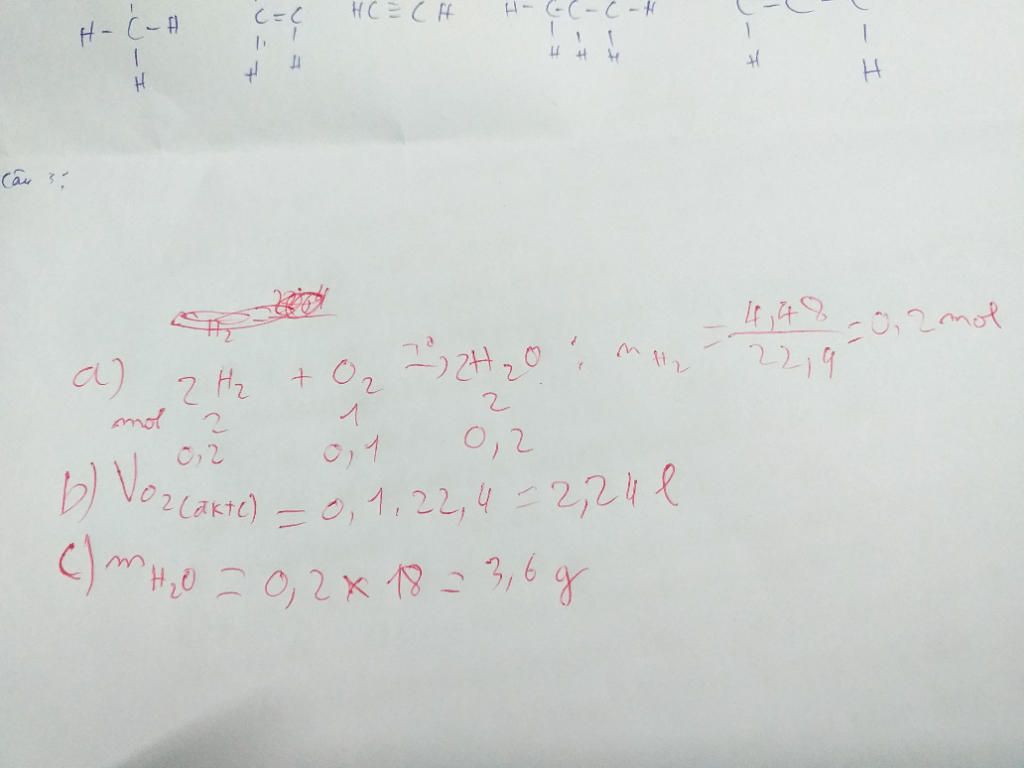 H-C-H C=C HC≡CH H-C-C-C-H C-C-C
H H H H H H H H
Câu 3:
H2
a) 2H2 + O2 t°→ 2H2O : nH2 = 4,48/22,4 = 0,2 mol
mol 2 1 2
0,2 0,1 0,2
b) VO2(đktc) = 0,1.22,4 = 2,24 l
c) mH2O = 0,2 x 18 = 3,6 g